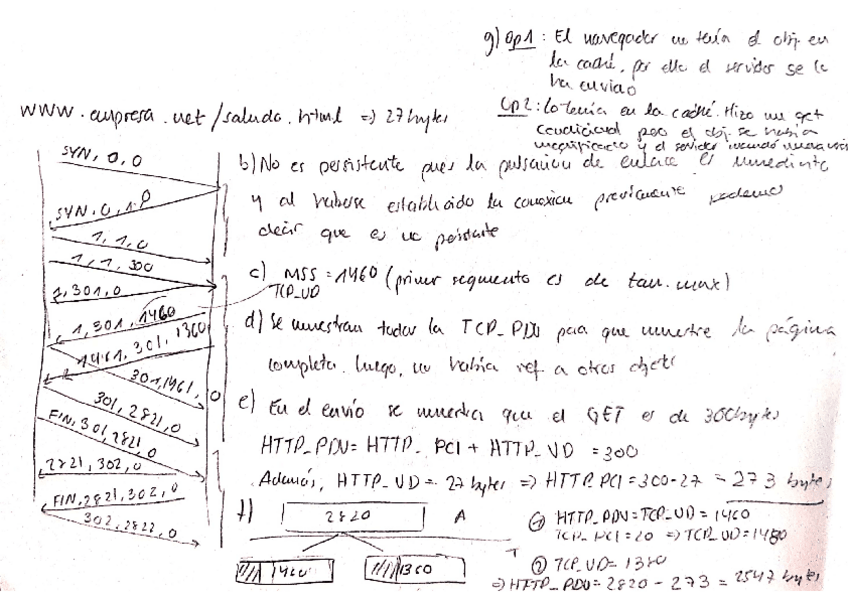 g) Op1: El navegador no tenía el obj. en
la caché, por ello el servidor se lo
ha enviado
Op2: Lo tenía en la caché. Hizo un get
condicional pero el obj. se había
modificado y el servidor
www.empresa.net/saludo.html => 27 bytes
SYN, 0, 0
SYN, 0, 1, 0
1, 1, 0
1, 1, 300
1, 301, 0
1, 301, 1460
1461, 301, 1360
301, 1461, 0
301, 2821, 0
FIN, 301, 2821, 0
2821, 302, 0
FIN, 2821, 302, 0
302, 2822, 0
b) No es persistente pues la pulsación de enlace es inmediata
y al haberse establecido la conexión previamente podemos
decir que es no persistente
c) MSS = 1460 (primer segmento es de tam. max)
TCP_UD
d) Se muestran todas la TCP_PDU para que muestre la página
completa. Luego, no había ref. a otros objets
e) En el envío se muestra que el GET es de 300 bytes
HTTP_PDU = HTTP_PCI + HTTP_UD = 300
Además, HTTP_UD = 27 bytes => HTTP_PCI = 300 - 27 = 273 bytes
f) 2820 A
T
1460
1360
① HTTP_PDU = TCP_UD = 1460
TCP_PCI = 20 => TCP_UD = 1480
② TCP_UD = 1380
=> HTTP_PDU = 2820 - 273 = 2547 bytes